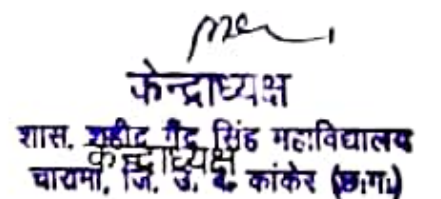 केन्द्राध्यक्ष
शास. शहीद गैंद सिंह महाविद्यालय
केन्द्राध्यक्ष
चारामा, जि. उ. ब. कांकेर (छ.ग.)